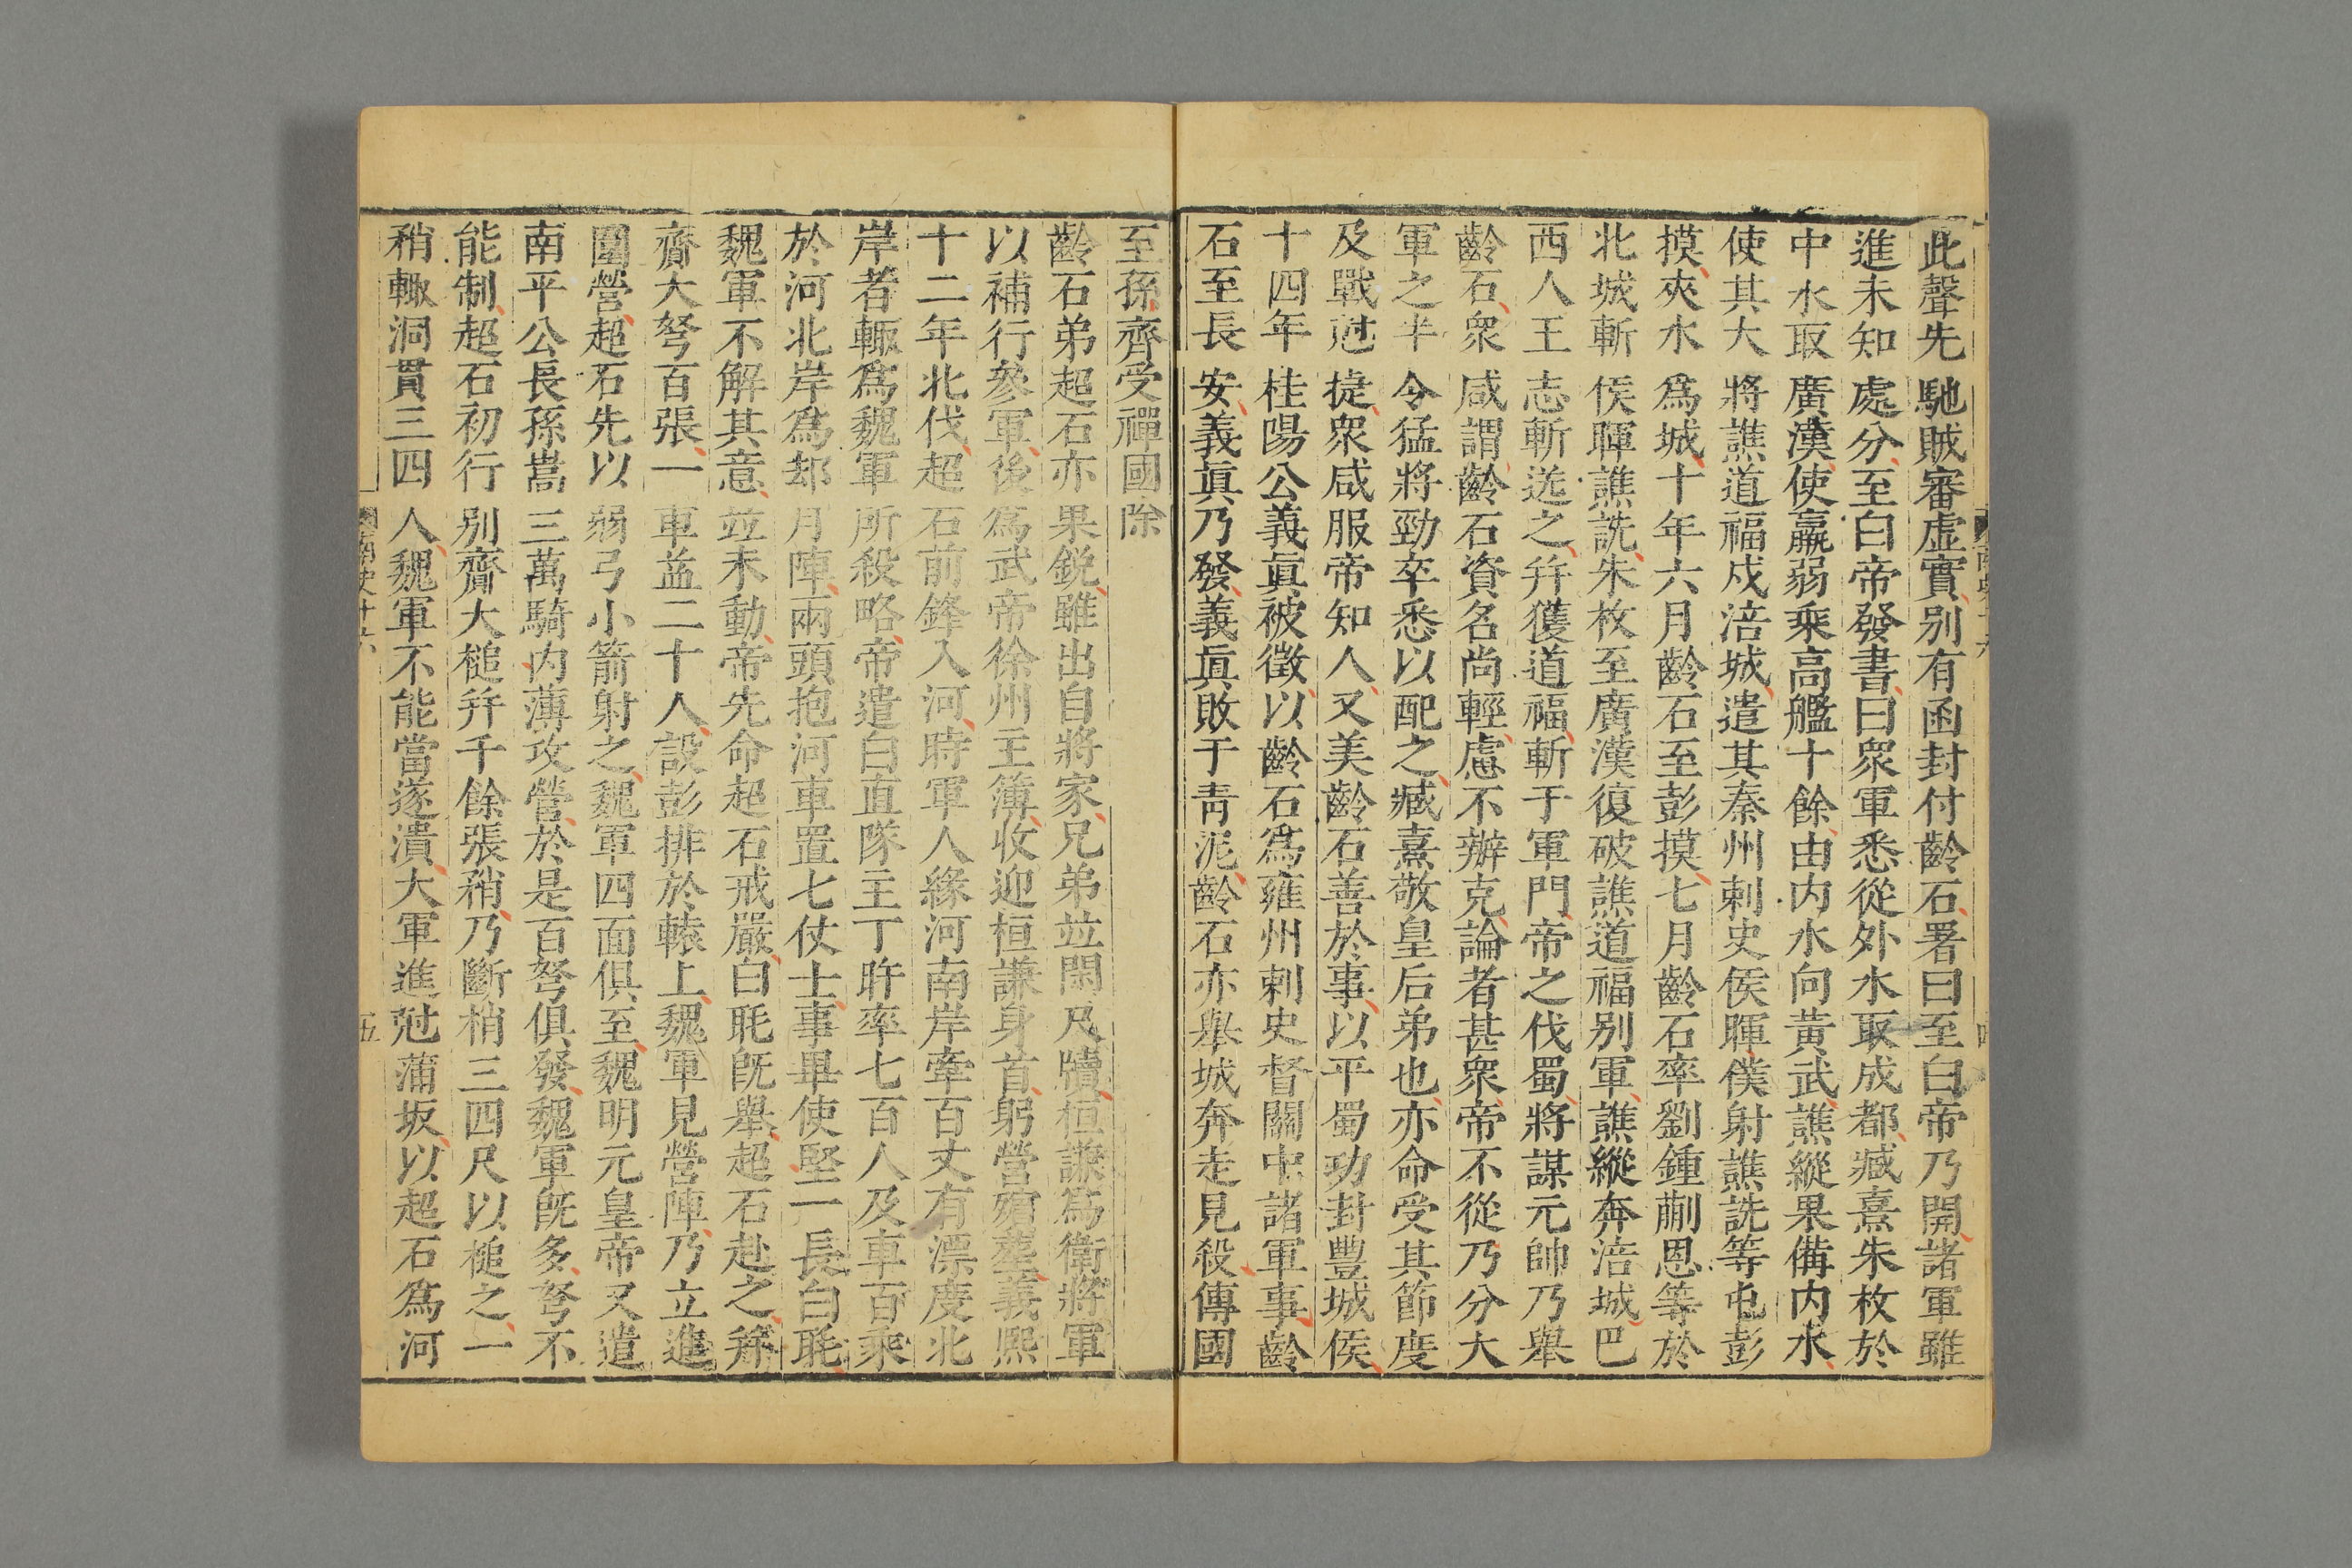 此聲先馳賊審虛實别有函封付齡石署曰至白帝乃開諸軍雖
進未知處分至白帝發書曰衆軍悉從外水取成都臧熹朱枚於
中水取廣漢使羸弱乘高艦十餘由内水向黃武譙縱果備内水
使其大將譙道福戍涪城遣其秦州刺史侯暉僕射譙詵等屯彭
摸夾水爲城十年六月齡石至彭摸七月齡石率劉鍾蒯恩等於
北城斬侯暉譙詵朱枚至廣漢復破譙道福别軍譙縱奔涪城巴
西人王志斬送之幷獲道福斬于軍門帝之伐蜀將謀元帥乃舉
齡石衆咸謂齡石資名尚輕慮不辦克論者甚衆帝不從乃分大
軍之半令猛將勁卒悉以配之臧熹敬皇后弟也亦命受其節度
及戰尅捷衆咸服帝知人又美齡石善於事以平蜀功封豐城侯
十四年桂陽公義眞被徵以齡石爲雍州刺史督關中諸軍事齡
石至長安義眞乃發義眞敗于靑泥齡石亦舉城奔走見殺傳國
至孫齊受禪國除
齡石弟超石亦果銳雖出自將家兄弟竝閑尺牘桓謙爲衛將軍
以補行參軍後爲武帝徐州主簿收迎桓謙身首躬營殯葬義熙
十二年北伐超石前鋒入河時軍人緣河南岸牽百丈有漂度北
岸者輙爲魏軍所殺略帝遣白直隊主丁旿率七百人及車百乘
於河北岸爲却月陣兩頭抱河車置七仗士事畢使竪一長白毦
魏軍不解其意竝未動帝先命超石戒嚴白毦旣舉超石赴之幷
齎大弩百張一車益二十人設彭排於轅上魏軍見營陣乃立進
圍營超石先以弱弓小箭射之魏軍四面俱至魏明元皇帝又遣
南平公長孫嵩三萬騎内薄攻營於是百弩俱發魏軍旣多弩不
能制超石初行别齎大槌幷千餘張矟乃斷矟三四尺以槌之一
矟輙洞貫三四人魏軍不能當遂潰大軍進尅蒲坂以超石爲河
南史十六
五